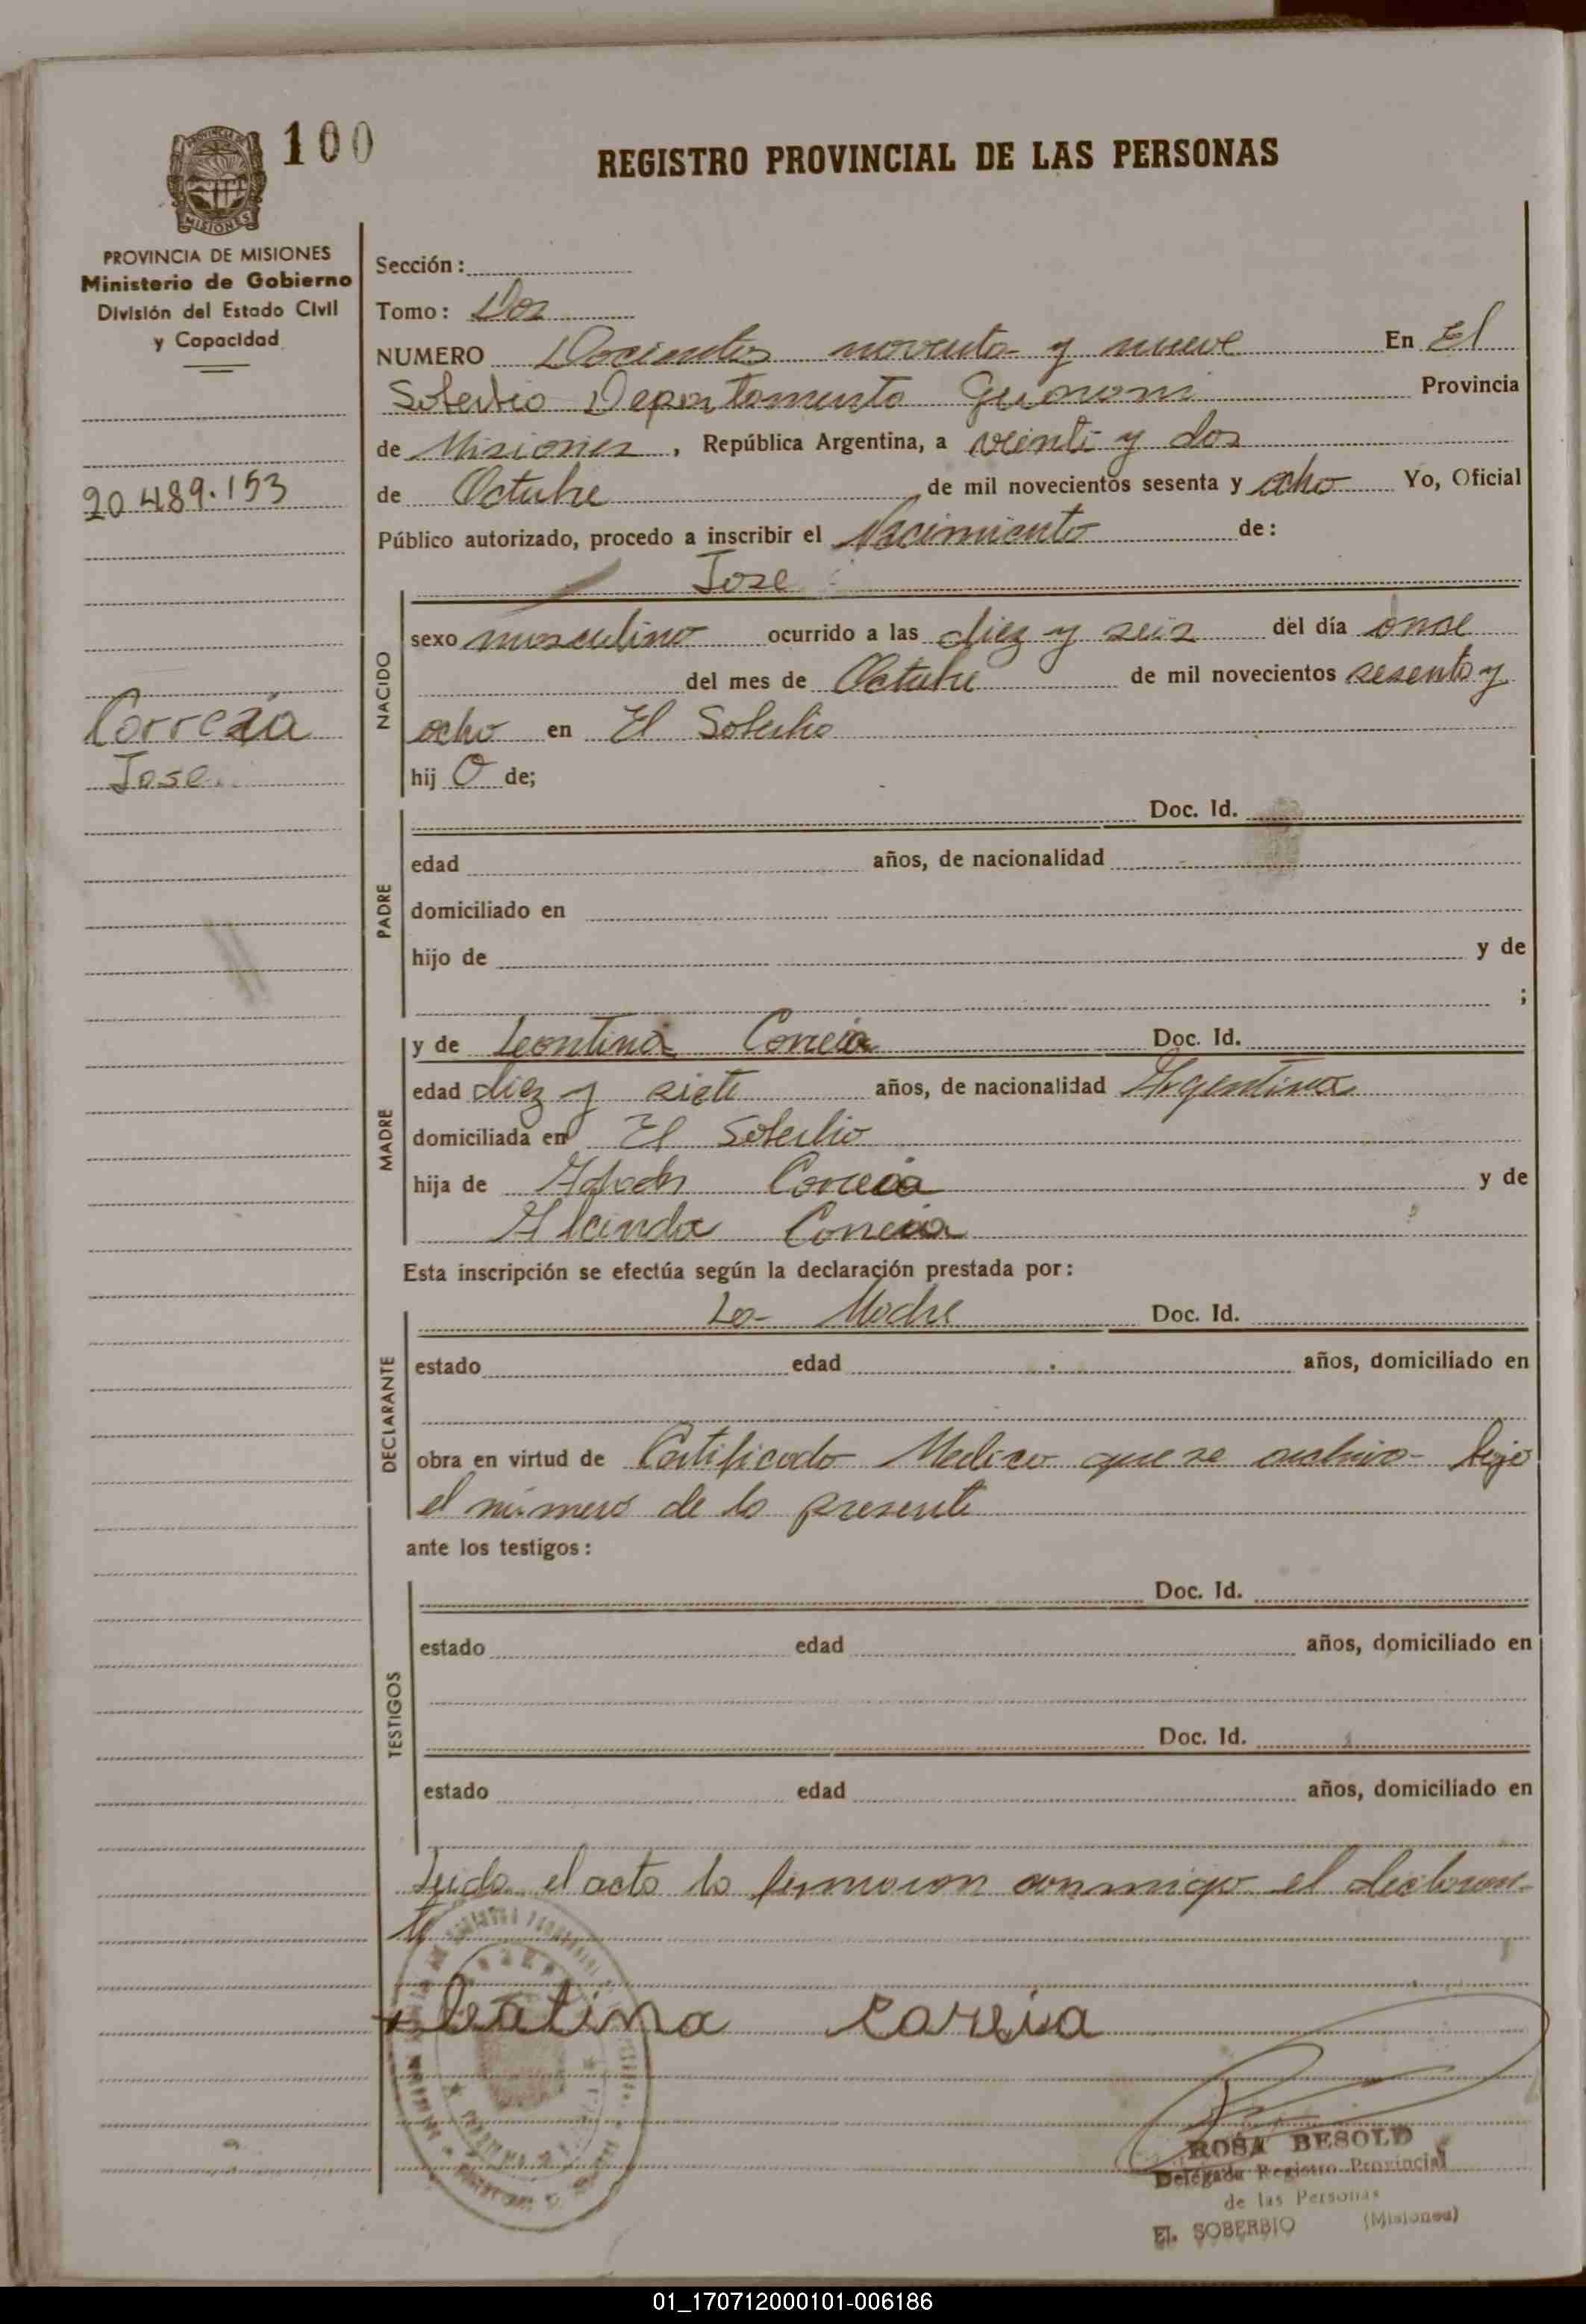 100
REGISTRO PROVINCIAL DE LAS PERSONAS
MISIONES
PROVINCIA DE MISIONES
Ministerio de Gobierno
División del Estado Civil
y Capacidad
20.489.153
Correia
Jose
Sección:
Tomo: Dos
NUMERO Docientos noventa y nueve En El
Soberbio Departamento Guarani Provincia
de Misiones, República Argentina, a veinti y dos
de Octubre de mil novecientos sesenta y ocho Yo, Oficial
Público autorizado, procedo a inscribir el Nacimiento de:
Jose
NACIDO
sexo masculino ocurrido a las diez y seis del día onse
del mes de Octubre de mil novecientos sesenta y
ocho en El Soberbio
hij O de;
PADRE
Doc. Id.
edad años, de nacionalidad
domiciliado en
hijo de y de
;
MADRE
y de Leontina Correia Doc. Id.
edad diez y siete años, de nacionalidad Argentina
domiciliada en El Soberbio
hija de Correia y de
Alcinda Correia
Esta inscripción se efectúa según la declaración prestada por:
DECLARANTE
La Madre Doc. Id.
estado edad años, domiciliado en
obra en virtud de Certificado Medico que se archiva bajo
el numero de la presente
ante los testigos:
TESTIGOS
Doc. Id.
estado edad años, domiciliado en
Doc. Id.
estado edad años, domiciliado en
Leida el acta la firmaron conmigo el declaran-
te
leatina correia
ROSA BESOLD
Delegada Registro Provincial
de las Personas
EL SOBERBIO (Misiones)
01_170712000101-006186